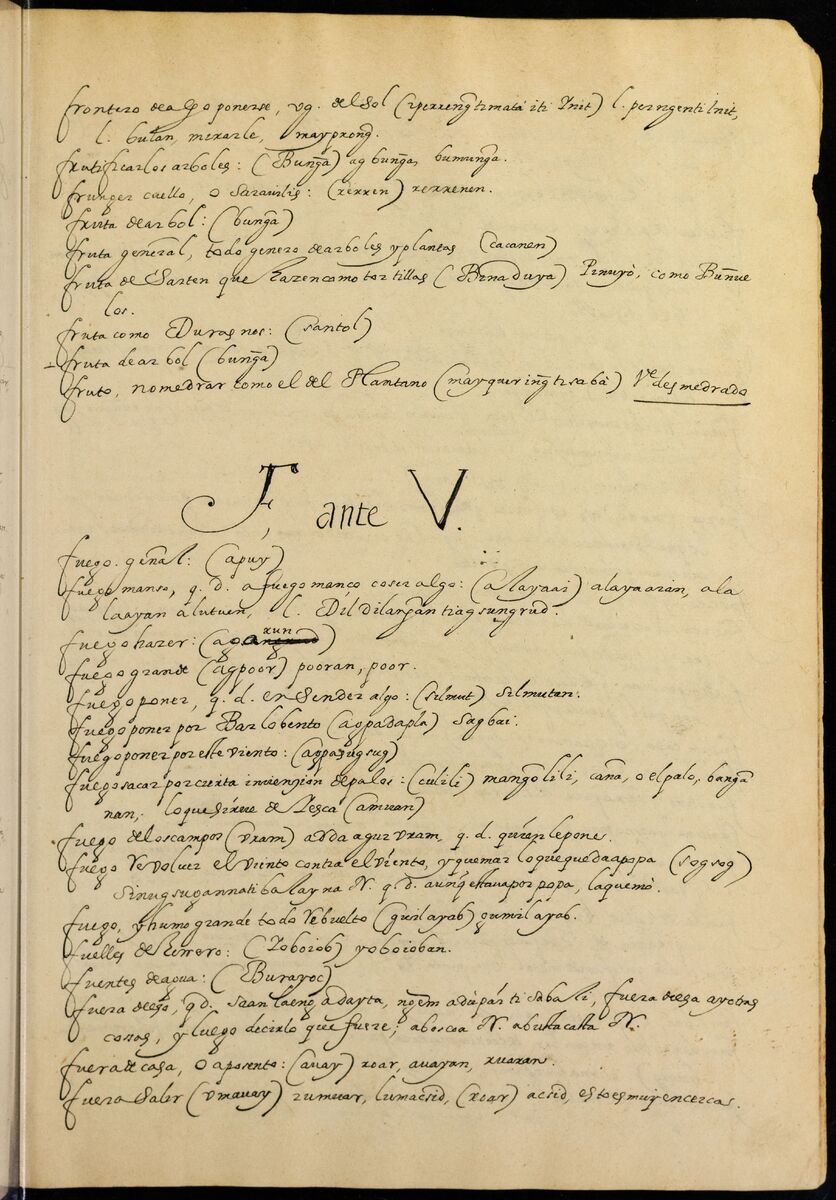 frontero de algo ponerse, vg. del Sol (rperreng timata iti Ynit) l. peringenti Init,
l. bulan, mirarle, maypreng.
frutificar los arboles: (Bunga) ag bunga, bumunga.
frunger cuello, o Saravilis: (rerren) rerrenen.
fruta de arbol: (bunga)
fruta general, todo genero de arboles y plantas (cacanen)
fruta de Sarten que hazen como tortillas (Binaduya) Pinuyo, como Buñue
los.
fruta como Durasnos: (santol)
fruta de arbol (bunga)
fruto, no medrar como el del Plantano (mayquiring ti saba) Ve. desmedrado
F, ante V.
fuego. genal: (apuy)
fuego manso, q. d. a fuego manço coser algo: (alayaai) alayaaian, ala
laayan a lutuen, l. Dildilangan tiagsungrud.
fuego hazer: (aga run)
fuego grande (agpoor) pooran, poor.
fuego poner, q. d. ensender algo: (silmut) silmutan.
fuego poner por Barlobento (agpadapla) sagbai.
fuego poner por este viento: (agpasugsug)
fuego sacar por cierta invension de palos: (culili) mangolili, caña, o el palo, banga
nan, lo que sirue de Yesca (amuan)
fuego de los campos (uram) adda agur uram, q. d. quien le pone.
fuego revolver el viento contra el viento, y quemar lo que queda a popa (sogsog)
Sinugsugannati balay na N. q. d. aunq estaua por popa, la quemo.
fuego, y humo grande todo rebuelto (guilayab) gumilayab.
fuelles de herrero: (Yoboiob) yoboioban.
fuentes de agua: (Burayoc)
fuera deso, qd. saan laeng adayta, ngem adupar ti sabali, fuera desa ay otras
cosas, y luego decirlo que fuere; aboscoa N. abustacasta N.
fuera de casa, o aposento: (auay) roar, auayan, ruaran.
fuera Salir (umauay) rumuar, lumacsid, (roar) acsid, esto es muy en cercas.